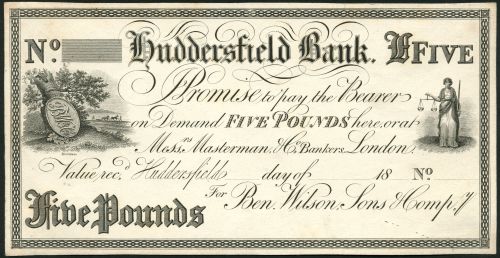 No. Huddersfield Bank. £FIVE
Promise to pay the Bearer
on Demand FIVE POUNDS here, or at
Messrs. Masterman, & Co. Bankers, London.
Value recd. Huddersfield day of 18 No
For Ben. Wilson, Sons & Comp.y
Five Pounds